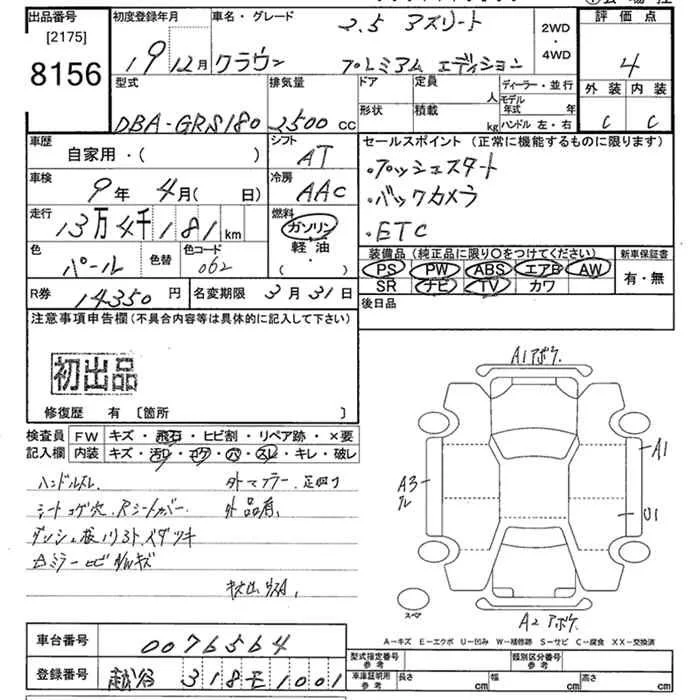 出品番号
[2175]
8156
初度登録年月
19年12月
車名・グレード
2.5 アスリート
クラウン プレミアム エディション
2WD
・
4WD
評価点
4
外装 内装
C C
型式
DBA-GRS180
排気量
2500 CC
ドア
形状
定員
人
積載
kg
ディーラー・並行
モデル年式 年
ハンドル 左・右
車歴
自家用・( )
シフト
AT
車検
9年 4月( 日)
冷房
AAC
走行
13万4千181km
燃料
ガソリン
軽油
・
( )
色
パール
色替
色コード
062
R券
14350円
名変期限 3月31日
セールスポイント (正常に機能するものに限ります)
・プッシュスタート
・バックカメラ
・ETC
装備品 (純正品に限り○をつけてください)
PS PW ABS エアB AW
SR ナビ TV カワ
新車保証書
有・無
後日品
注意事項申告欄(不具合内容等は具体的に記入して下さい)
初出品
修復歴 有 [箇所 ]
検査員記入欄
FW キズ・飛石・ヒビ割・リペア跡・×要
内装 キズ・汚レ・コゲ・穴・スレ・キレ・破レ
ハンドルスレ
外マフラー
シートコゲ穴、Rシートカバー
外品有
A1
A3
U1
スペア
A-キズ E-エクボ U-凹み W-補修跡 S-サビ C-腐食 XX-交換済
車台番号
0076564
登録番号
越谷 318 モ 1001
型式指定番号
参考
類別区分番号
参考
車庫証明用
参考
長さ cm
幅 cm
高さ cm